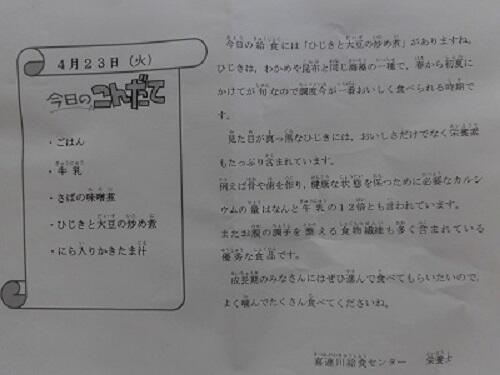 4月23日(火)
今日のこんだて
・ごはん
・牛乳
・さばの味噌煮
・ひじきと大豆の炒め煮
・にら入りかきたま汁
今日の給食には「ひじきと大豆の炒め煮」がありますね。
ひじきは、わかめや昆布と同じ海藻の一種で、春から初夏に
かけてが旬なので調度今が一番おいしく食べられる時期で
す。
見た目が真っ黒なひじきには、おいしさだけでなく栄養素
もたっぷり含まれています。
例えば骨や歯を作り、健康な状態を保つために必要なカルシ
ウムの量はなんと牛乳の12倍とも言われています。
またお腹の調子を整える食物繊維も多く含まれている
優秀な食品です。
成長期のみなさんにはぜひ進んで食べてもらいたいので、
よく噛んでたくさん食べてくださいね。
喜連川給食センター 栄養士